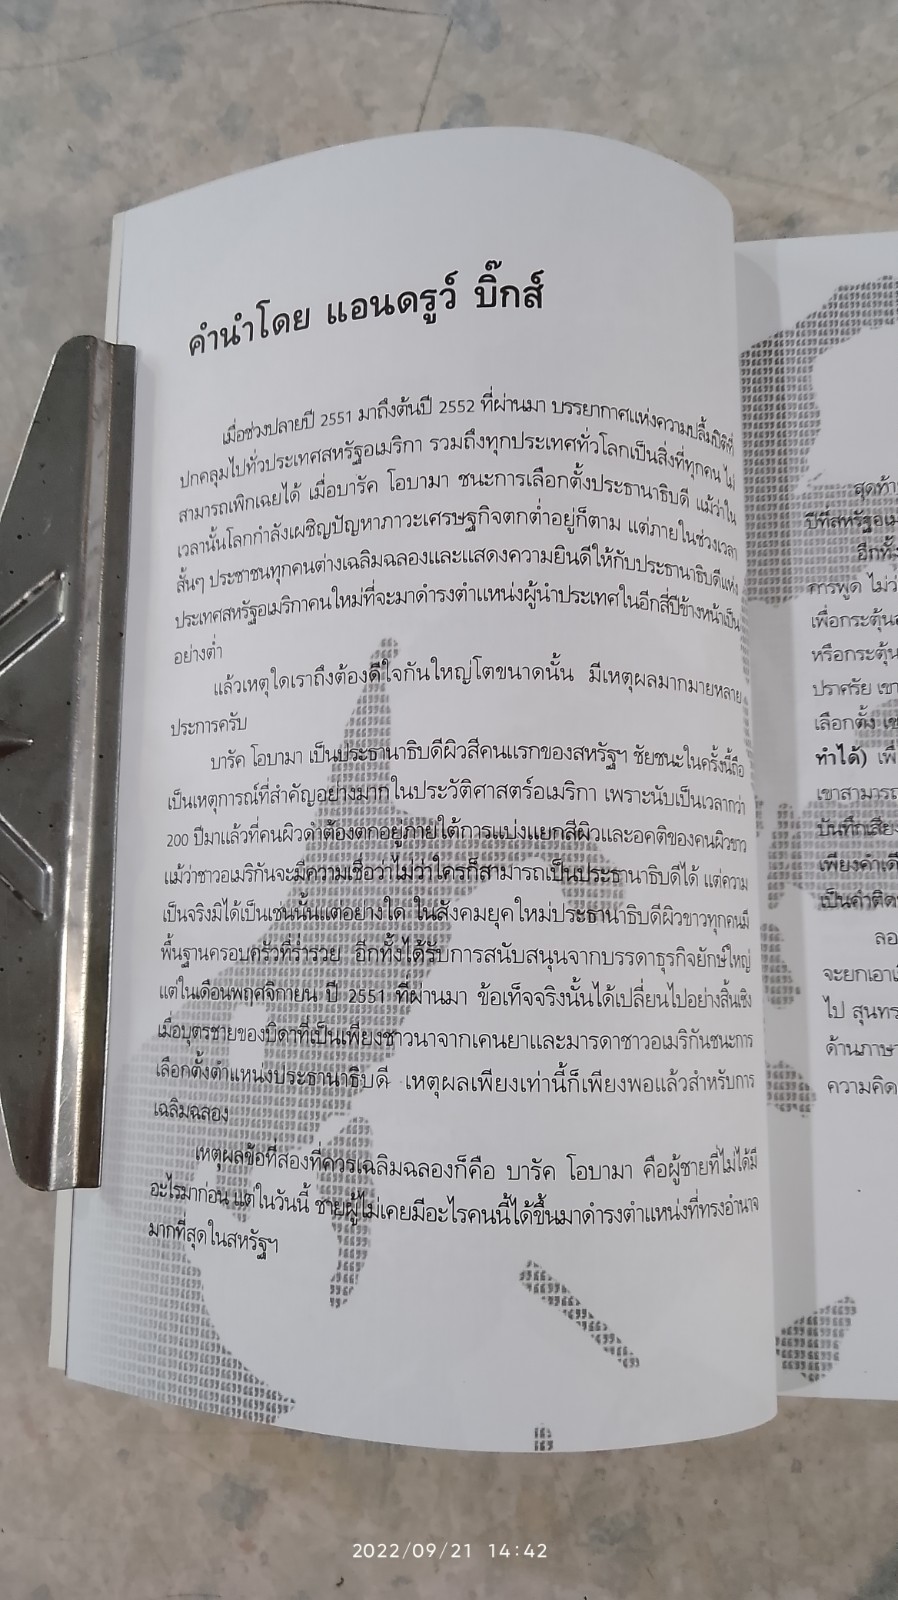 คำนำโดย แอนดรูว์ บิ๊กส์
เมื่อช่วงปลายปี 2551 มาถึงต้นปี 2552 ที่ผ่านมา บรรยากาศแห่งความปลื้มปิติที่
ปกคลุมไปทั่วประเทศสหรัฐอเมริกา รวมถึงทุกประเทศทั่วโลกเป็นสิ่งที่ทุกคนไม่
สามารถเพิกเฉยได้ เมื่อบารัค โอบามา ชนะการเลือกตั้งประธานาธิบดี แม้ว่าใน
เวลานั้นโลกกำลังเผชิญปัญหาภาวะเศรษฐกิจตกต่ำอยู่ก็ตาม แต่ภายในช่วงเวลา
สั้นๆ ประชาชนทุกคนต่างเฉลิมฉลองและแสดงความยินดีให้กับประธานาธิบดีแห่ง
ประเทศสหรัฐอเมริกาคนใหม่ที่จะมาดำรงตำแหน่งผู้นำประเทศในอีกสี่ปีข้างหน้าเป็น
อย่างต่ำ
แล้วเหตุใดเราถึงต้องดีใจกันใหญ่โตขนาดนั้น มีเหตุผลมากมายหลาย
ประการครับ
บารัค โอบามา เป็นประธานาธิบดีผิวสีคนแรกของสหรัฐฯ ชัยชนะในครั้งนี้ถือ
เป็นเหตุการณ์ที่สำคัญอย่างมากในประวัติศาสตร์อเมริกา เพราะนับเป็นเวลากว่า
200 ปีมาแล้วที่คนผิวดำต้องตกอยู่ภายใต้การแบ่งแยกสีผิวและอคติของคนผิวขาว
แม้ว่าชาวอเมริกันจะมีความเชื่อว่าไม่ว่าใครก็สามารถเป็นประธานาธิบดีได้ แต่ความ
เป็นจริงมิได้เป็นเช่นนั้นแต่อย่างใด ในสังคมยุคใหม่ประธานาธิบดีผิวขาวทุกคนมี
พื้นฐานครอบครัวที่ร่ำรวย อีกทั้งได้รับการสนับสนุนจากบรรดาธุรกิจยักษ์ใหญ่
แต่ในเดือนพฤศจิกายน ปี 2551 ที่ผ่านมา ข้อเท็จจริงนั้นได้เปลี่ยนไปอย่างสิ้นเชิง
เมื่อบุตรชายของบิดาที่เป็นเพียงชาวนาจากเคนยาและมารดาชาวอเมริกันชนะการ
เลือกตั้งตำแหน่งประธานาธิบดี เหตุผลเพียงเท่านี้ก็เพียงพอแล้วสำหรับการ
เฉลิมฉลอง
เหตุผลข้อที่สองที่ควรเฉลิมฉลองก็คือ บารัค โอบามา คือผู้ชายที่ไม่ได้มี
อะไรมาก่อน แต่ในวันนี้ ชายผู้ไม่เคยมีอะไรคนนี้ได้ขึ้นมาดำรงตำแหน่งที่ทรงอำนาจ
มากที่สุดในสหรัฐฯ
สุดท้า
ปีที่สหรัฐอเ
อีกทั้ง
การพูด ไม่ว่
เพื่อกระตุ้น
หรือกระตุ้น
ปราศรัย เขา
เลือกตั้ง เข
ทำได้) เพื่
เขาสามารถ
บันทึกเสียง
เพียงคำเดี
เป็นคำติด
ลอ
จะยกเอาเ
ไป สุนทร
ด้านภาษา
ความคิด
2022/09/21 14:42